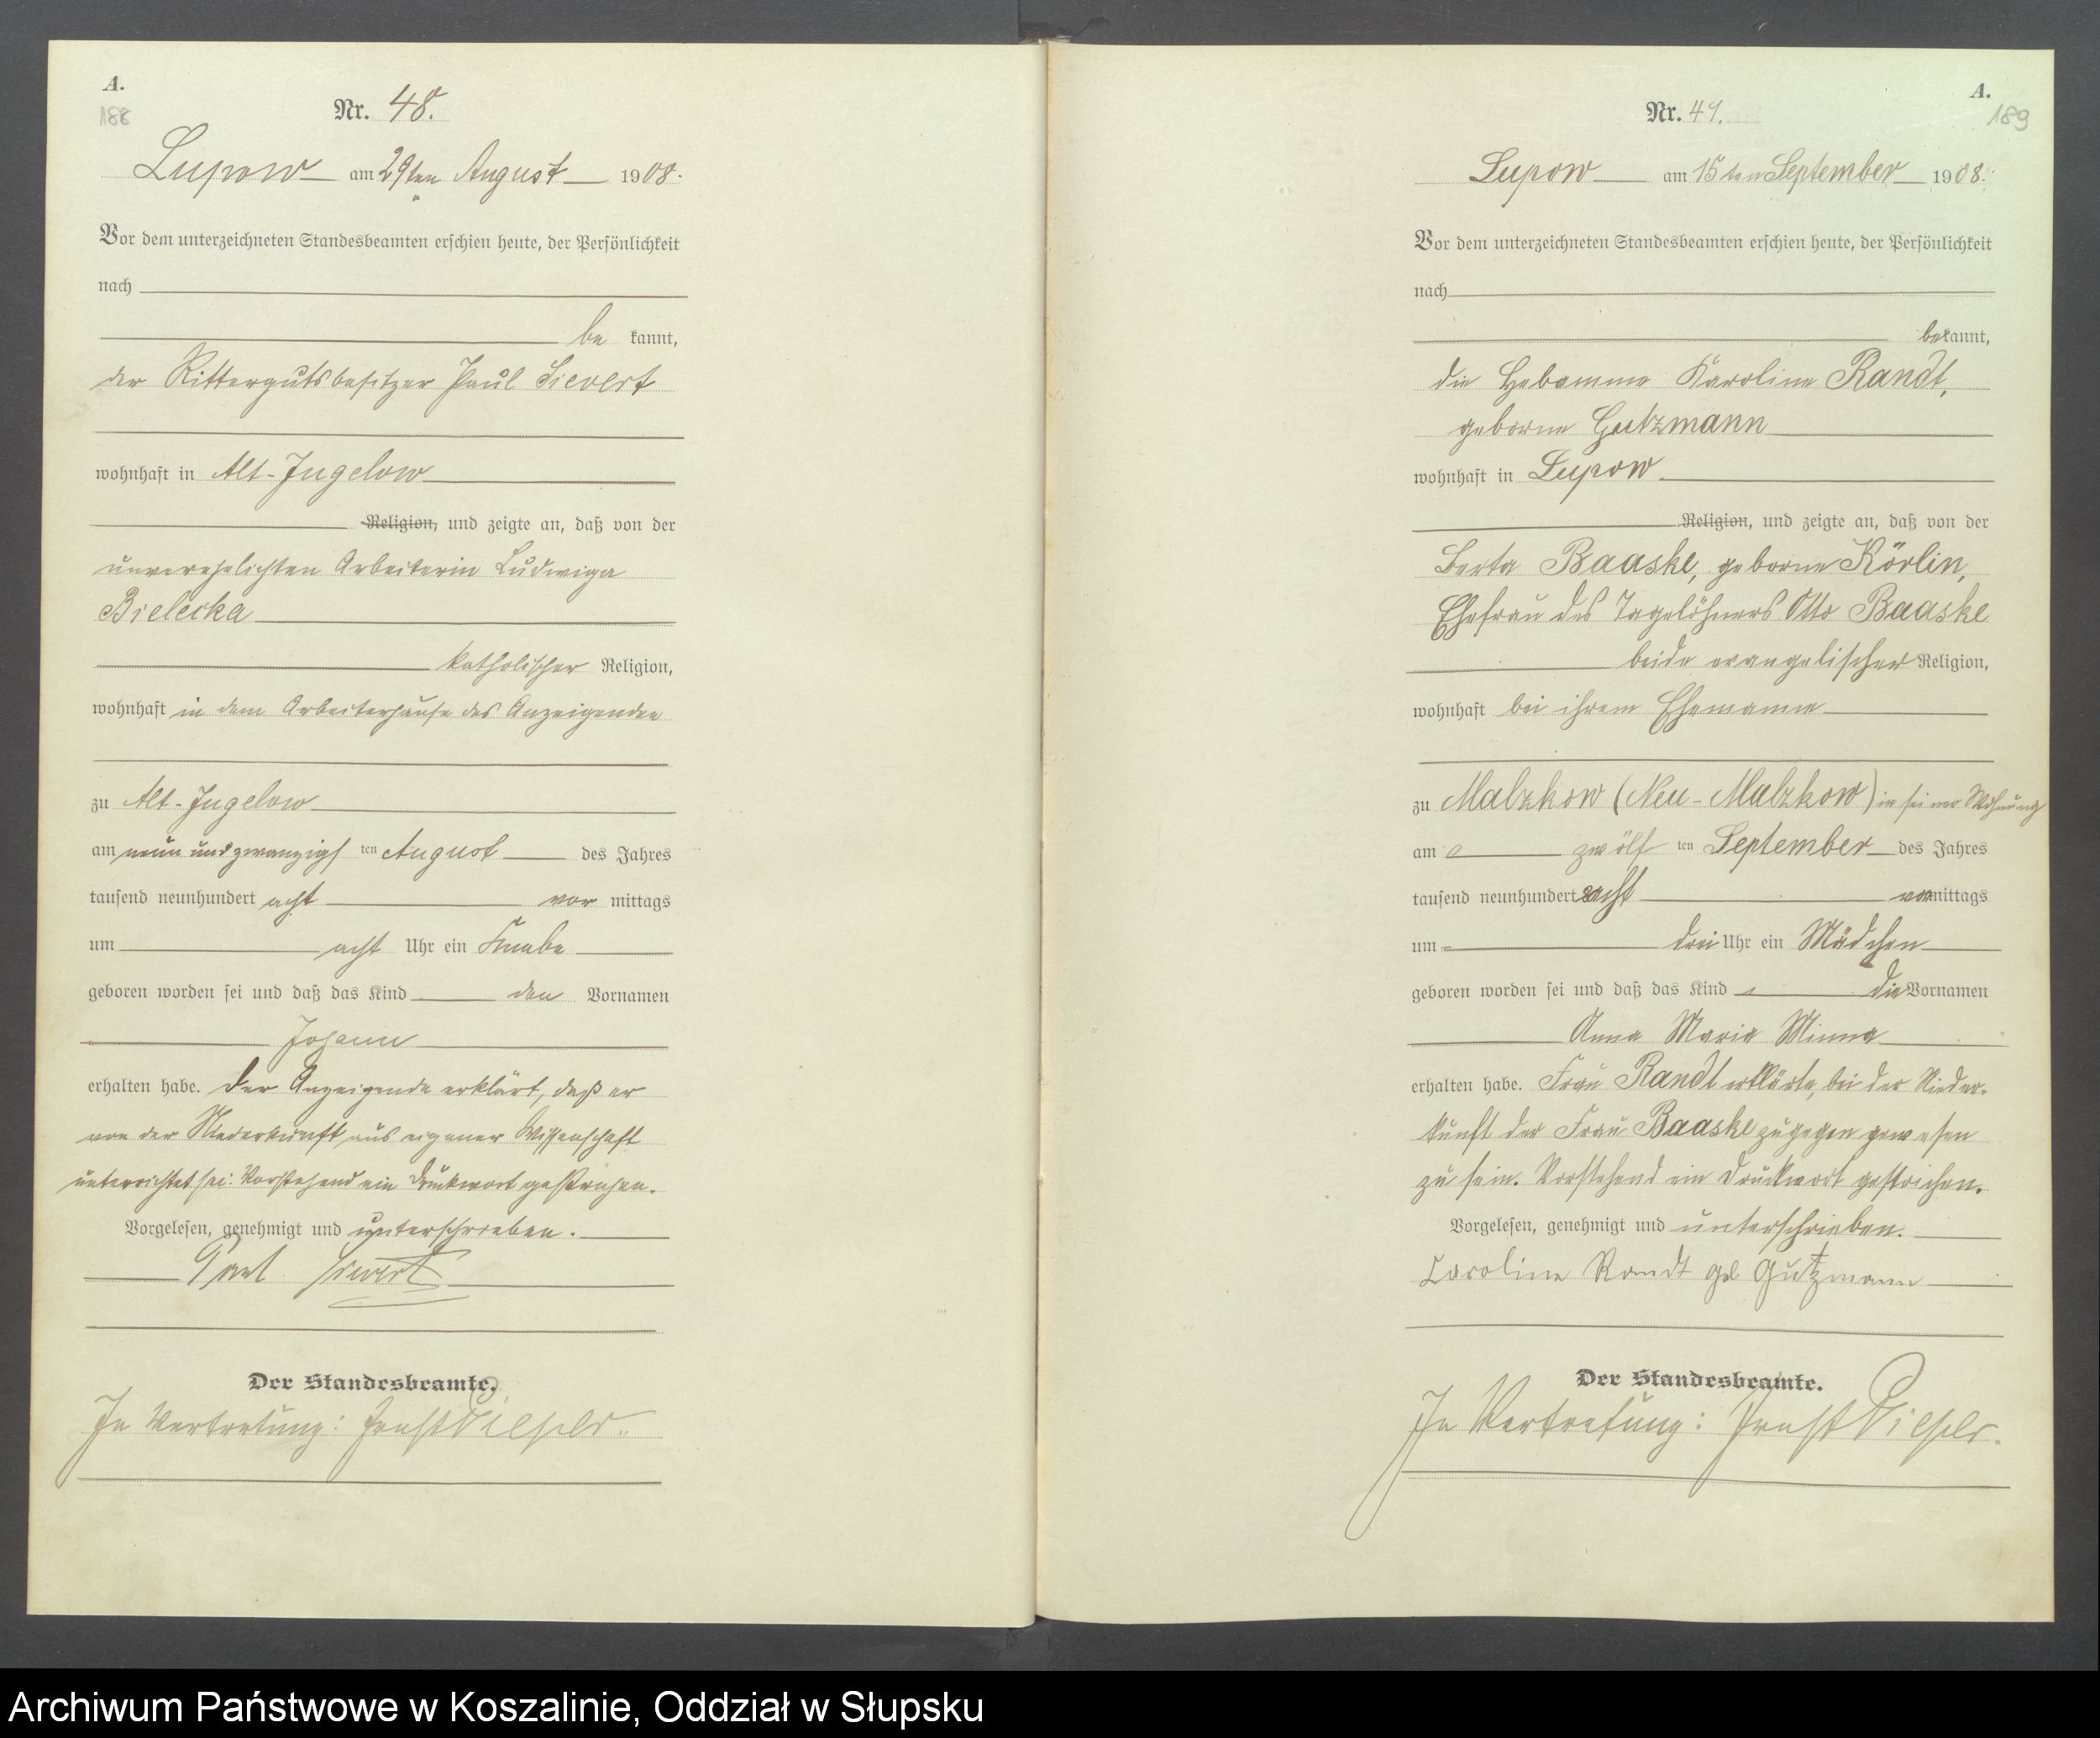 A.
188
Nr. 48.
Lupow am 29ten August 1908.
Vor dem unterzeichneten Standesbeamten erschien heute, der Persönlichkeit
nach
be kannt,
der Rittergutsbesitzer Paul Sievert
wohnhaft in Alt-Jugelow
Religion, und zeigte an, daß von der
unverehelichten Arbeiterin Ludwiga
Bielecka
katholischer Religion,
wohnhaft in dem Arbeiterhause des Anzeigenden
zu Alt-Jugelow
am neun und zwanzigsten August des Jahres
tausend neunhundert acht vor mittags
um acht Uhr ein Knabe
geboren worden sei und daß das Kind den Vornamen
Johann
erhalten habe. Der Anzeigende erklärt, daß er
von der Niederkunft aus eigener Wissenschaft
unterrichtet sei. Vorstehend ein Druckwort gestrichen.
Vorgelesen, genehmigt und unterschrieben.
Paul Sievert
Der Standesbeamte.
In Vertretung: Ernst
A.
189
Nr. 49.
Lupow am 15ten September 1908.
Vor dem unterzeichneten Standesbeamten erschien heute, der Persönlichkeit
nach
bekannt,
die Hebamme Karoline Randt,
geborne Gutzmann
wohnhaft in Lupow
Religion, und zeigte an, daß von der
Berta Baaske, geborne Körlin,
Ehefrau des Tagelöhners Otto Baaske
beide evangelischer Religion,
wohnhaft bei ihrem Ehemanne
zu Malzkow (Neu-Malzkow) in seiner Wohnung
am zwölften September des Jahres
tausend neunhundert acht vormittags
um drei Uhr ein Mädchen
geboren worden sei und daß das Kind die Vornamen
Anna Maria Minna
erhalten habe. Frau Randt erklärte, bei der Nieder-
kunft der Frau Baaske zugegen gewesen
zu sein. Vorstehend ein Druckwort gestrichen.
Vorgelesen, genehmigt und unterschrieben.
Caroline Randt geb Gutzmann
Der Standesbeamte.
In Vertretung: Ernst
Archiwum Państwowe w Koszalinie, Oddział w Słupsku